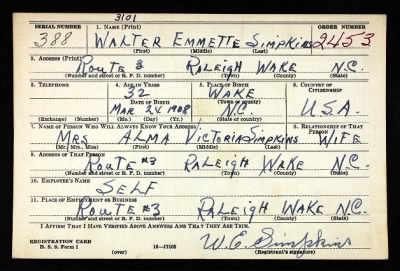 3101
SERIAL NUMBER 1. NAME (Print) ORDER NUMBER
388 WALTER EMMETTE SIMPKINS 2453
(First) (Middle) (Last)
2. ADDRESS (Print)
ROUTE 3 RALEIGH WAKE N.C.
(Number and street or R. F. D. number) (Town) (County) (State)
3. TELEPHONE 4. AGE IN YEARS 5. PLACE OF BIRTH 6. COUNTRY OF CITIZENSHIP
32 WAKE
DATE OF BIRTH (Town or county)
MAR 24 1908 N.C. U.S.A.
(Exchange) (Number) (Mo.) (Day) (Yr.) (State or country)
7. NAME OF PERSON WHO WILL ALWAYS KNOW YOUR ADDRESS 8. RELATIONSHIP OF THAT PERSON
MRS ALMA VICTORIA SIMPKINS WIFE
(Mr., Mrs., Miss) (First) (Middle) (Last)
9. ADDRESS OF THAT PERSON
ROUTE #3 RALEIGH WAKE N.C.
(Number and street or R. F. D. number) (Town) (County) (State)
10. EMPLOYER'S NAME
SELF
11. PLACE OF EMPLOYMENT OR BUSINESS
ROUTE #3 RALEIGH WAKE N.C.
(Number and street or R. F. D. number) (Town) (County) (State)
I AFFIRM THAT I HAVE VERIFIED ABOVE ANSWERS AND THAT THEY ARE TRUE.
W.E. Simpkins
REGISTRATION CARD
D. S. S. Form 1 (over) 16—17105 (Registrant's signature)